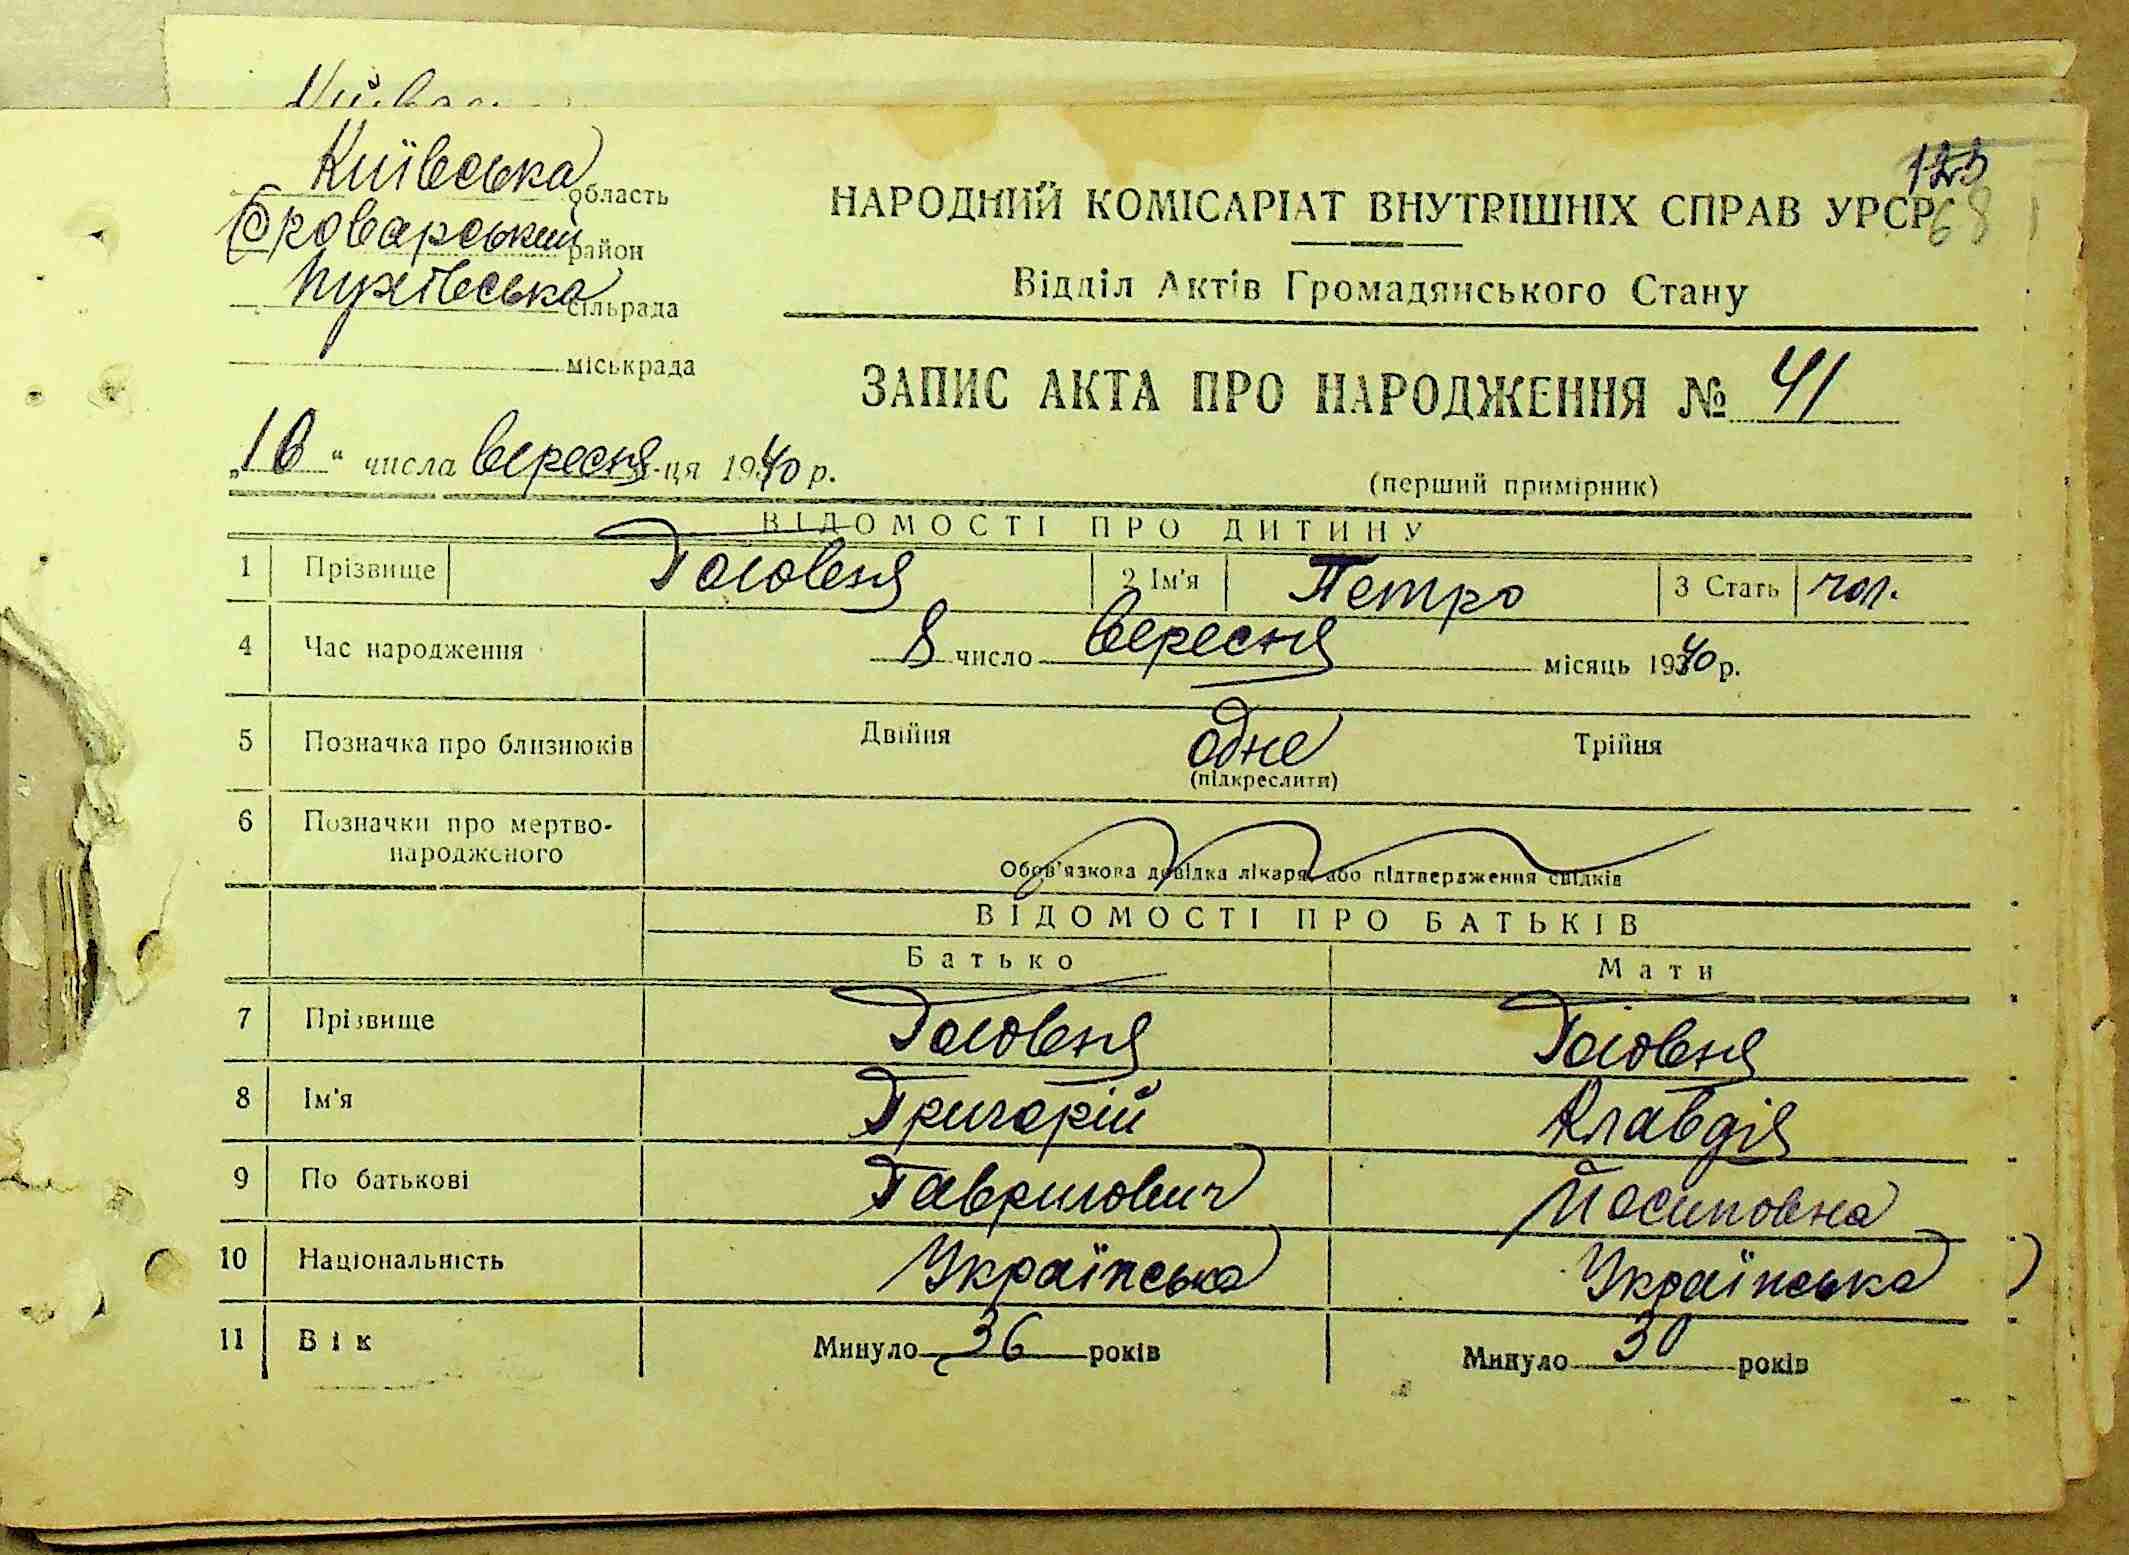 Київська область
Броварський район
Пухівська сільрада
міськрада
123
68
НАРОДНИЙ КОМІСАРІАТ ВНУТРІШНІХ СПРАВ УРСР
Відділ Актів Громадянського Стану
ЗАПИС АКТА ПРО НАРОДЖЕННЯ № 41
„10“ числа вересня м-ця 1940 р.
(перший примірник)
ВІДОМОСТІ ПРО ДИТИНУ
1 Прізвище Головня 2 Ім'я Петро 3 Стать чол.
4 Час народження 8 число вересня місяць 1940 р.
5 Позначка про близнюків Двійня одне Трійня
(підкреслити)
6 Позначки про мертво-
народженого
Обов'язкова довідка лікаря, або підтвердження свідків
ВІДОМОСТІ ПРО БАТЬКІВ
Батько Мати
7 Прізвище Головня Головня
8 Ім'я Григорій Клавдія
9 По батькові Гаврилович Йосиповна
10 Національність Українська Українська
11 Вік Минуло 36 років Минуло 30 років